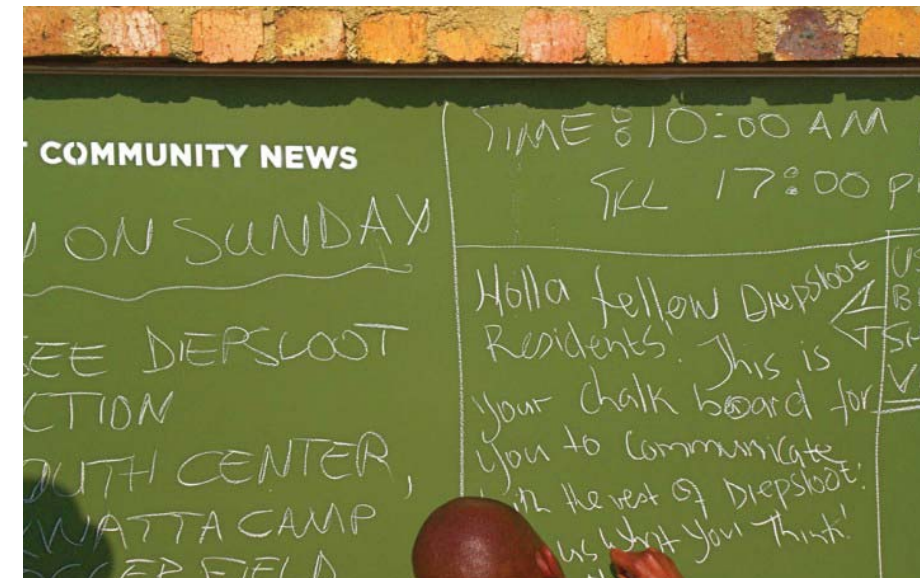 COMMUNITY NEWS
ON SUNDAY
SEE DIEPSLOOT
CTION
OUTH CENTER,
WATTA CAMP
FIELD
TIME: 10:00 AM
TILL 17:00 P
Holla fellow Diepsloot
Residents. This is
your chalk board for
you to communicate
with the rest of Diepsloot!
us What You Think!